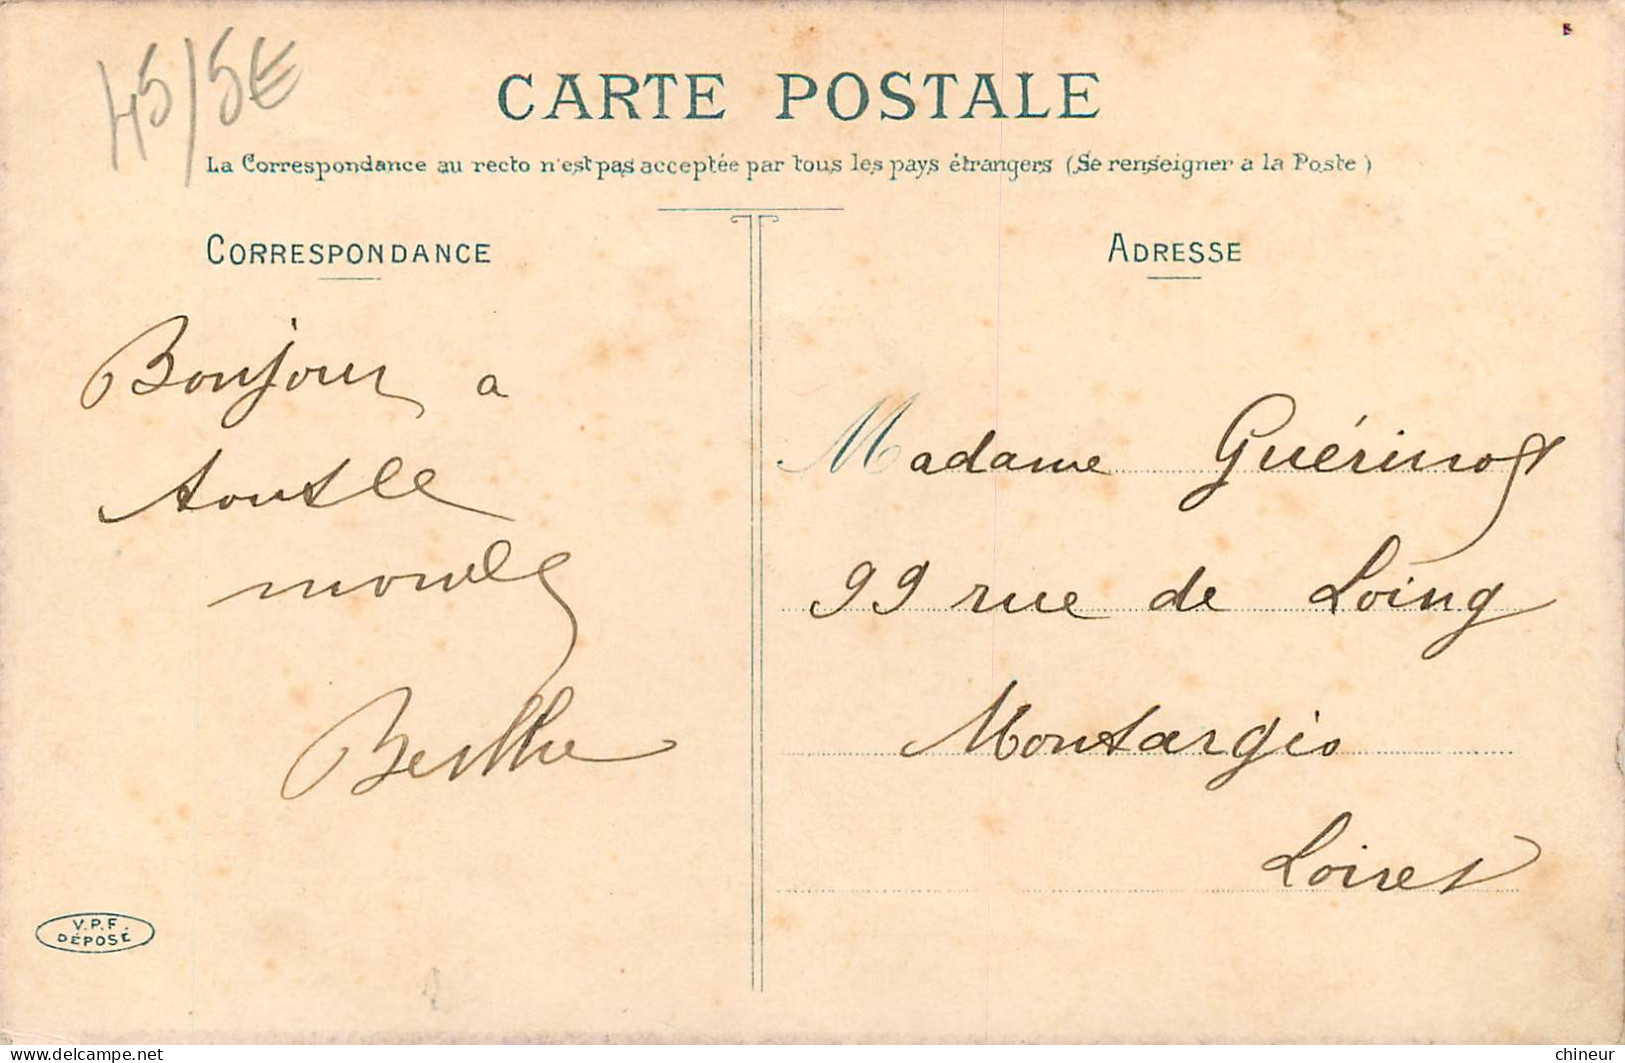 45/5E
CARTE POSTALE
La Correspondance au recto n'est pas acceptée par tous les pays étrangers (Se renseigner a la Poste)
CORRESPONDANCE
Bonjour a
tout le
monde
Berthe
V.P.F.
DÉPOSÉ
ADRESSE
Madame Guérinot
99 rue de Loing
Montargis
Loiret
chineur